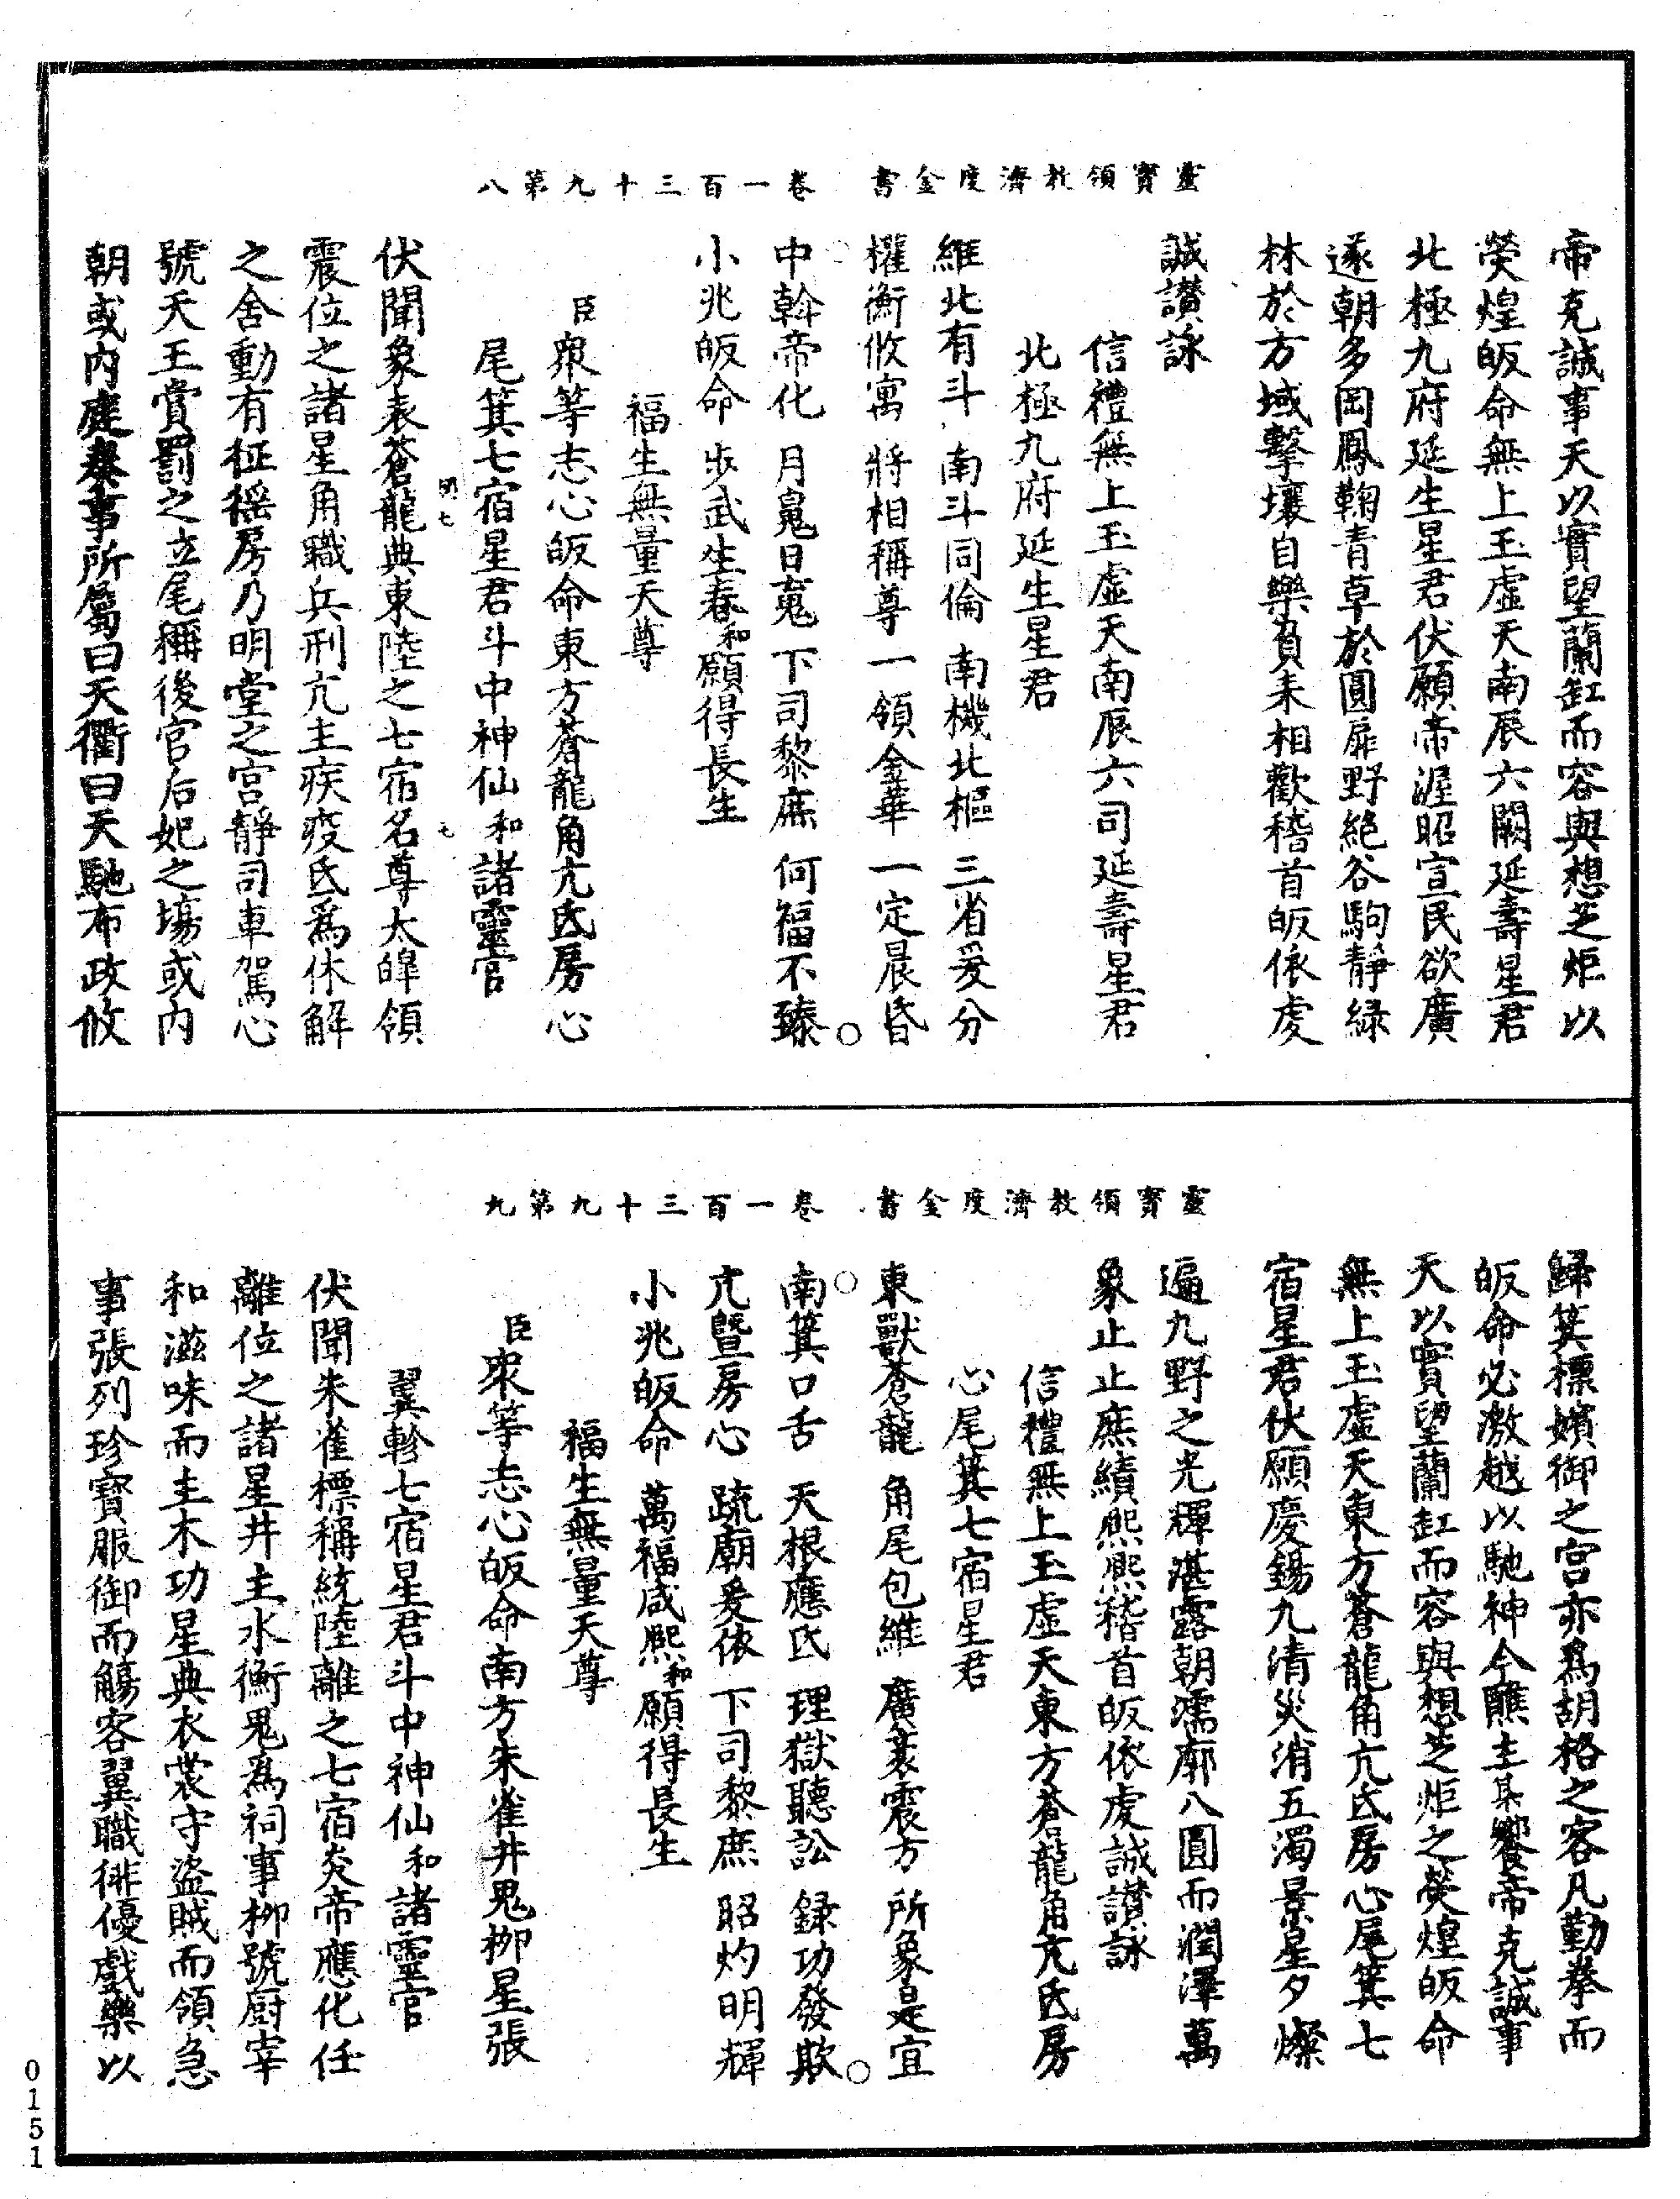 靈寶領教濟度金書 卷一百三十九第八
帝克誠事天以實望蘭缸而容與想芝炬以
熒煌皈命無上玉虛天南辰六闕延壽星君
北極九府延生星君伏願帝渥昭宣民欲廣
遂朝多岡鳳鞠青草於圓扉野絕谷駒靜綠
林於方域擊壤自樂負耒相歡稽首皈依虔
誠讃詠
信禮無上玉虛天南辰六司延壽星君
北極九府延生星君
維北有斗 南斗同倫 南機北樞 三省爰分
權衡攸寓 將相稱尊 一領金華 一定晨昏
○中斡帝化 月䰟日䰟 下司黎庶 何福不臻○
小兆皈命 步武生春和願得長生
福生無量天尊
臣衆等志心皈命東方蒼龍角亢氐房心
尾箕七宿星君斗中神仙和諸靈官
伏聞象表蒼龍典東陸之七宿名尊太皥領
震位之諸星角職兵刑亢主疾疫氐爲休解
之舍動有征徭房乃明堂之宮靜司車駕心
號天王賞罰之立尾稱後宮后妃之場或內
朝或內庭奏事所屬曰天衢曰天馳布政攸
靈寶領教濟度金書 卷一百三十九第九
歸箕標嬪御之宮亦爲胡格之客凡勤拳而
皈命必激越以馳神今醮主某饗帝克誠事
天以實望蘭缸而容與想芝炬之熒煌皈命
無上玉虛天東方蒼龍角亢氐房心尾箕七
宿星君伏願慶錫九清災消五濁景星夕燦
遍九野之光輝湛露朝濡廓八圓而潤澤萬
象止止庶績熙熙稽首皈依虔誠讃詠
信禮無上玉虛天東方蒼龍角亢氐房
心尾箕七宿星君
東獸蒼龍 角尾包維 廣袤震方 所象是宜
○南箕口舌 天根應氐 理獄聽訟 錄功發欺○
亢曁房心 疏廟爰依 下司黎庶 昭灼明輝
小兆皈命 萬福咸熙和願得長生
福生無量天尊
臣衆等志心皈命南方朱雀井鬼柳星張
翼軫七宿星君斗中神仙和諸靈官
伏聞朱雀標稱統陸離之七宿炎帝應化任
離位之諸星井主水衡鬼爲祠事柳號廚宰
和滋味而主木功星典衣裳守盜賊而領急
事張列珍寶服御而觴客翼職俳優戲樂以
0151